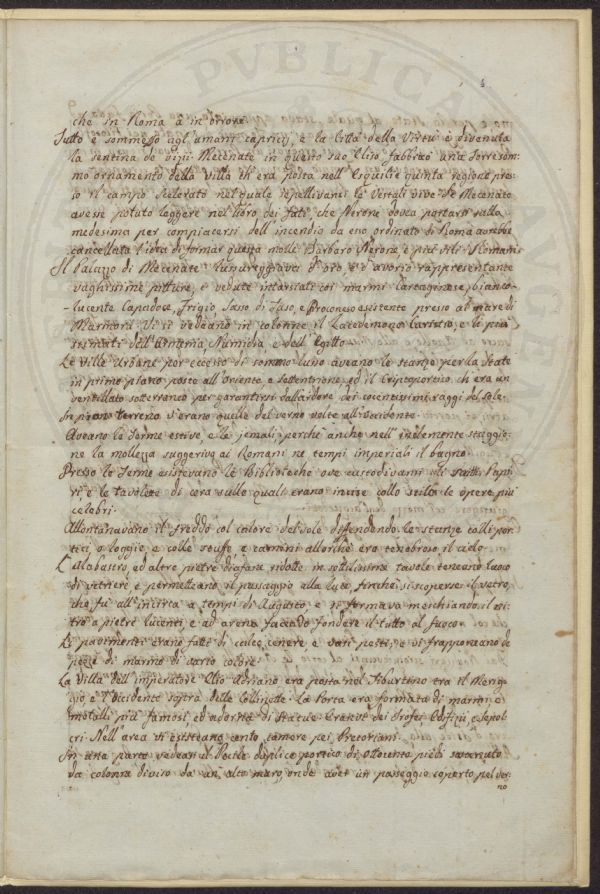 che in Roma à in orrore.
Tutto è sommesso agl'umani capricij, e la Città della Virtù è divenuta
la sentina de vizi. Mecenate in questo suo Elio, fabbricò una Torre som-
mo ornamento della Villa ch'era posta nell'Esquilie quinta regione pres-
so il campo Scelerato nel quale sepellivansi le Vestali vive. Se Mecenate
avesse potuto leggere nel libro dei fati, che Nerone dovea portarsi sulla
medesima per compiacersi dell'incendio da esso ordinato di Roma avrebbe
cancellata l'idea di formar questa molli Barbaro Nerone, e più vili Romani.
Il Palazzo di Mecenate lampreggiava d'oro, e d'avorio rappresentante
vaghissime pitture, e vedute intarsiati coi marmi Cartaginese, bianco-
-lucente Capadoce, Frigio, Sasso di Jaso, e Proconeso esistente presso al mare di
Marmora. Vi si vedeano in colonne il Lacedemone, Caristio, e le più
stimati dell'Armenia, Numidia e dell'Egitto.
Le Ville Urbane per eccesso di sommo lusso aveano le stanze per la State
in primo piano poste all'oriente, e settentrione, ed il Criptoportico ch'era un
ventillato sotterraneo per garantirsi dall'ardore dei cocentissimi raggi del sole.
In piano terreno v'erano quelle del verno volte all'occidente.
Aveano le Terme estive, e le jemali, perchè anche nell'inclemente staggio-
ne la mollezza suggeriva ai Romani ne tempi imperiali il bagno.
Presso le Terme esistevano le Biblioteche ove custodivansi gli scritti Papi-
ri, e le tavolette di cera sulle quali erano incise collo stilo le opere più
celebri.
Allontanavano il freddo col calore del sole diffendendo le stanze colli por-
tici, o loggie, e colle stuffe, e camini allorchè era tenebroso il cielo.
L'alabastro, ed altre pietre diafane ridotte in sottilissime tavole teneano luogo
di vetriere e permetteano il passaggio alla luce, finchè si scoperse il vetro,
che fu all'incirca a tempi di Augusto, e si formava meschiando il ni-
tro a pietre lucenti, e ad arena facendo fondere il tutto al fuoco.
Li pavimenti erano fatti di calce, cenere, e vasi pesti, e vi frapponeano de
pezzi di marmo di vario colore.
La Villa dell'imperatore Elio Adriano era posta nel Tiburtino tra il Merig-
gio, e l'occidente sopra delle Collinette. La Porta era formata di marmi, e
metalli più famosi, ed adorna di Statue, Trofei, Edificii, e Sepol-
cri. Nell'area vi esisteano cento camere pei Pretoriani.
In una parte vedeasi il Pecile duplice portico di ottocento piedi sostenuto
da colonne diviso da un alto muro, onde aver un passeggio coperto pel ver-
no
PVBLICA